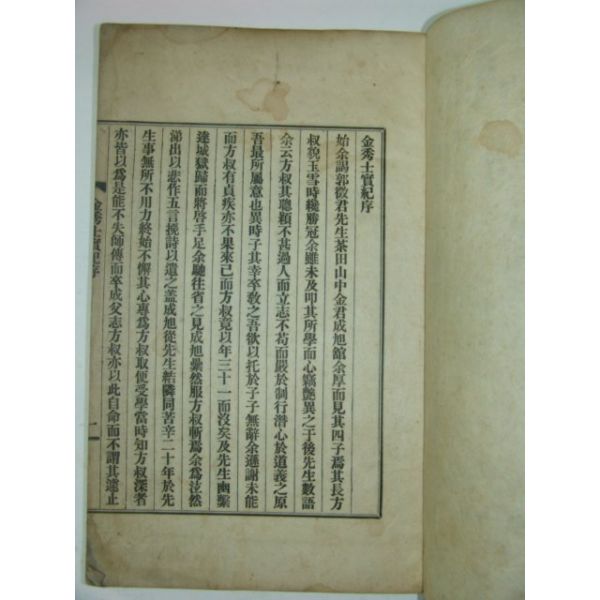 金秀士實紀序
始余謁郭徵君先生茶田山中金君成旭館余厚而見其四子焉其長方
叔貌玉雪時纔勝冠余雖未及叩其所學而心竊艶異之于後先生數語
余云方叔其聰穎不甚過人而立志不苟而嚴於制行潛心於道義之原
吾最所屬意也異時子其幸卒敎之吾欲以托於子子無辭余遜謝未能
而方叔有貞疾亦不果來已而方叔竟以年三十一而沒矣及先生幽繫
達城獄歸而將啓手足余馳往省之見成旭纍然服方叔斬焉余爲泫然
涕出以悲作五言挽詩以遺之盖成旭從先生結隣同苦辛二十年於先
生事無所不用力終始不懈其心專爲方叔取便受學當時知方叔深者
亦皆以爲是能不失師傳而卒成父志方叔亦以此自命而不謂其遽止
金秀士實紀序
一